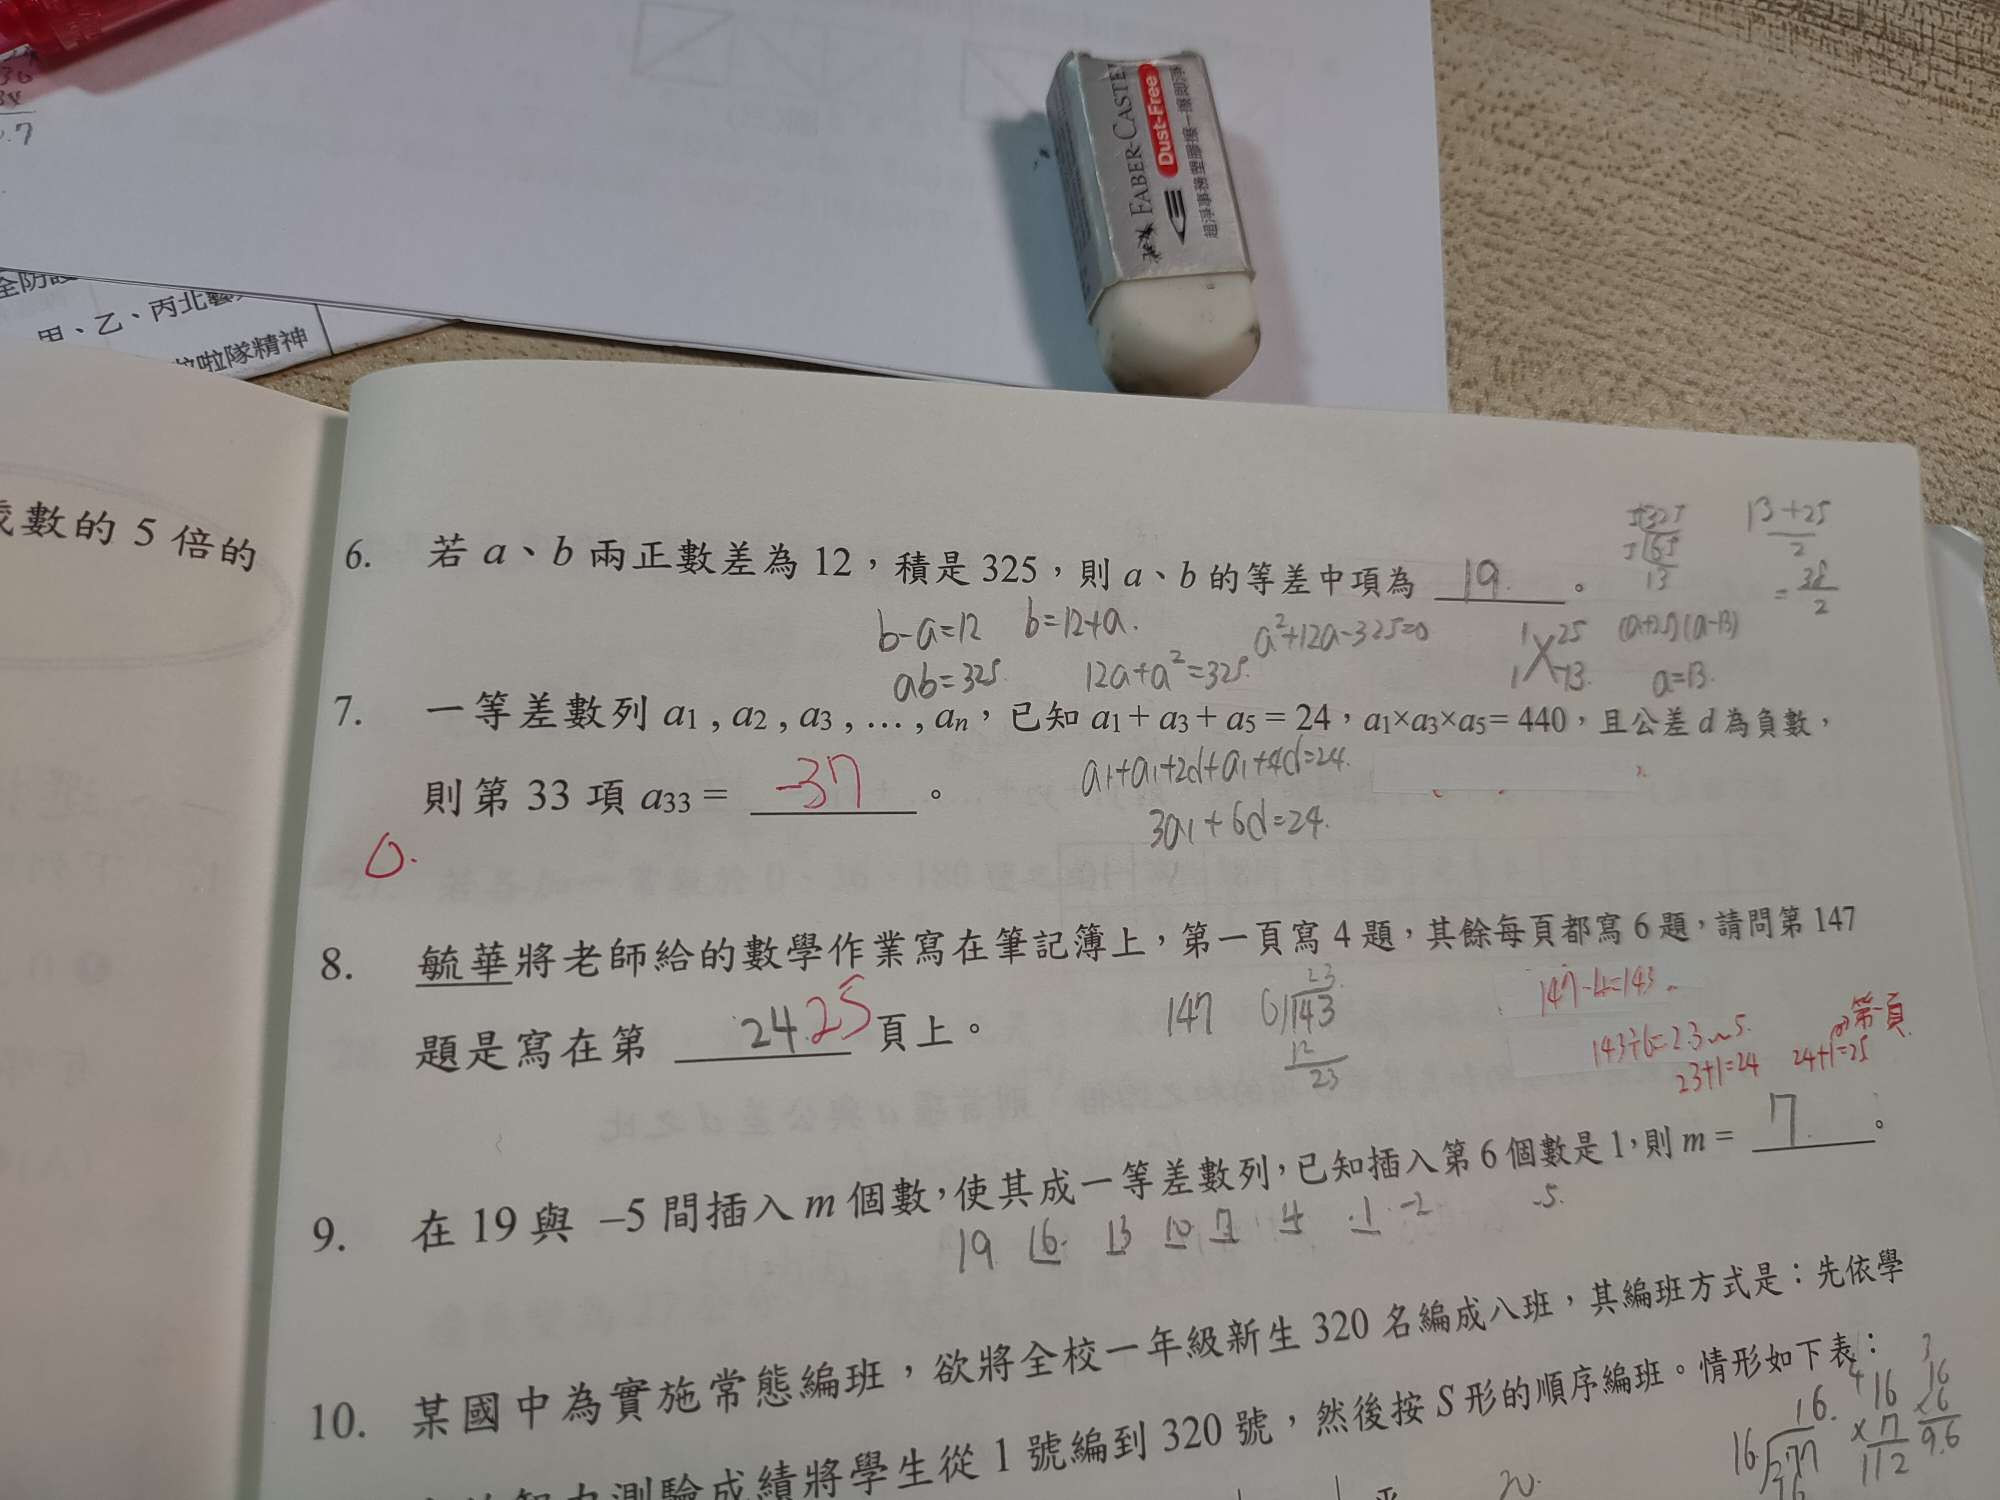 36
.7
FABER-CASTE
Dust-Free
超淨事務塑膠擦一擦即淨
全防護
甲、乙、丙北藝
啦隊精神
數的 5 倍的
6. 若 a、b 兩正數差為 12，積是 325，則 a、b 的等差中項為 19 。
13+25
2
= 38
2
b-a=12 b=12+a.
a²+12a-325=0
1 25
1 -13
(a+25)(a-13)
ab=325. 12a+a²=325.
a=13.
7. 一等差數列 a1 , a2 , a3 , … , an，已知 a1 + a3 + a5 = 24，a1×a3×a5= 440，且公差 d 為負數，
則第 33 項 a33 = -37 。
a1+a1+2d+a1+4d=24.
3a1+6d=24.
8. 毓華將老師給的數學作業寫在筆記簿上，第一頁寫 4 題，其餘每頁都寫 6 題，請問第 147
題是寫在第 24 25 頁上。
147
23
6 143
12
23
147-4=143
143÷6=23…5
23+1=24 24+1=25
第一頁
9. 在 19 與 –5 間插入 m 個數，使其成一等差數列，已知插入第 6 個數是 1，則 m = 7 。
19 16 13 10 7 4 1 -2 -5.
10. 某國中為實施常態編班，欲將全校一年級新生 320 名編成八班，其編班方式是：先依學
智力測驗成績將學生從 1 號編到 320 號，然後按 S 形的順序編班。情形如下表：
16
16
×7
112
16
×6
96